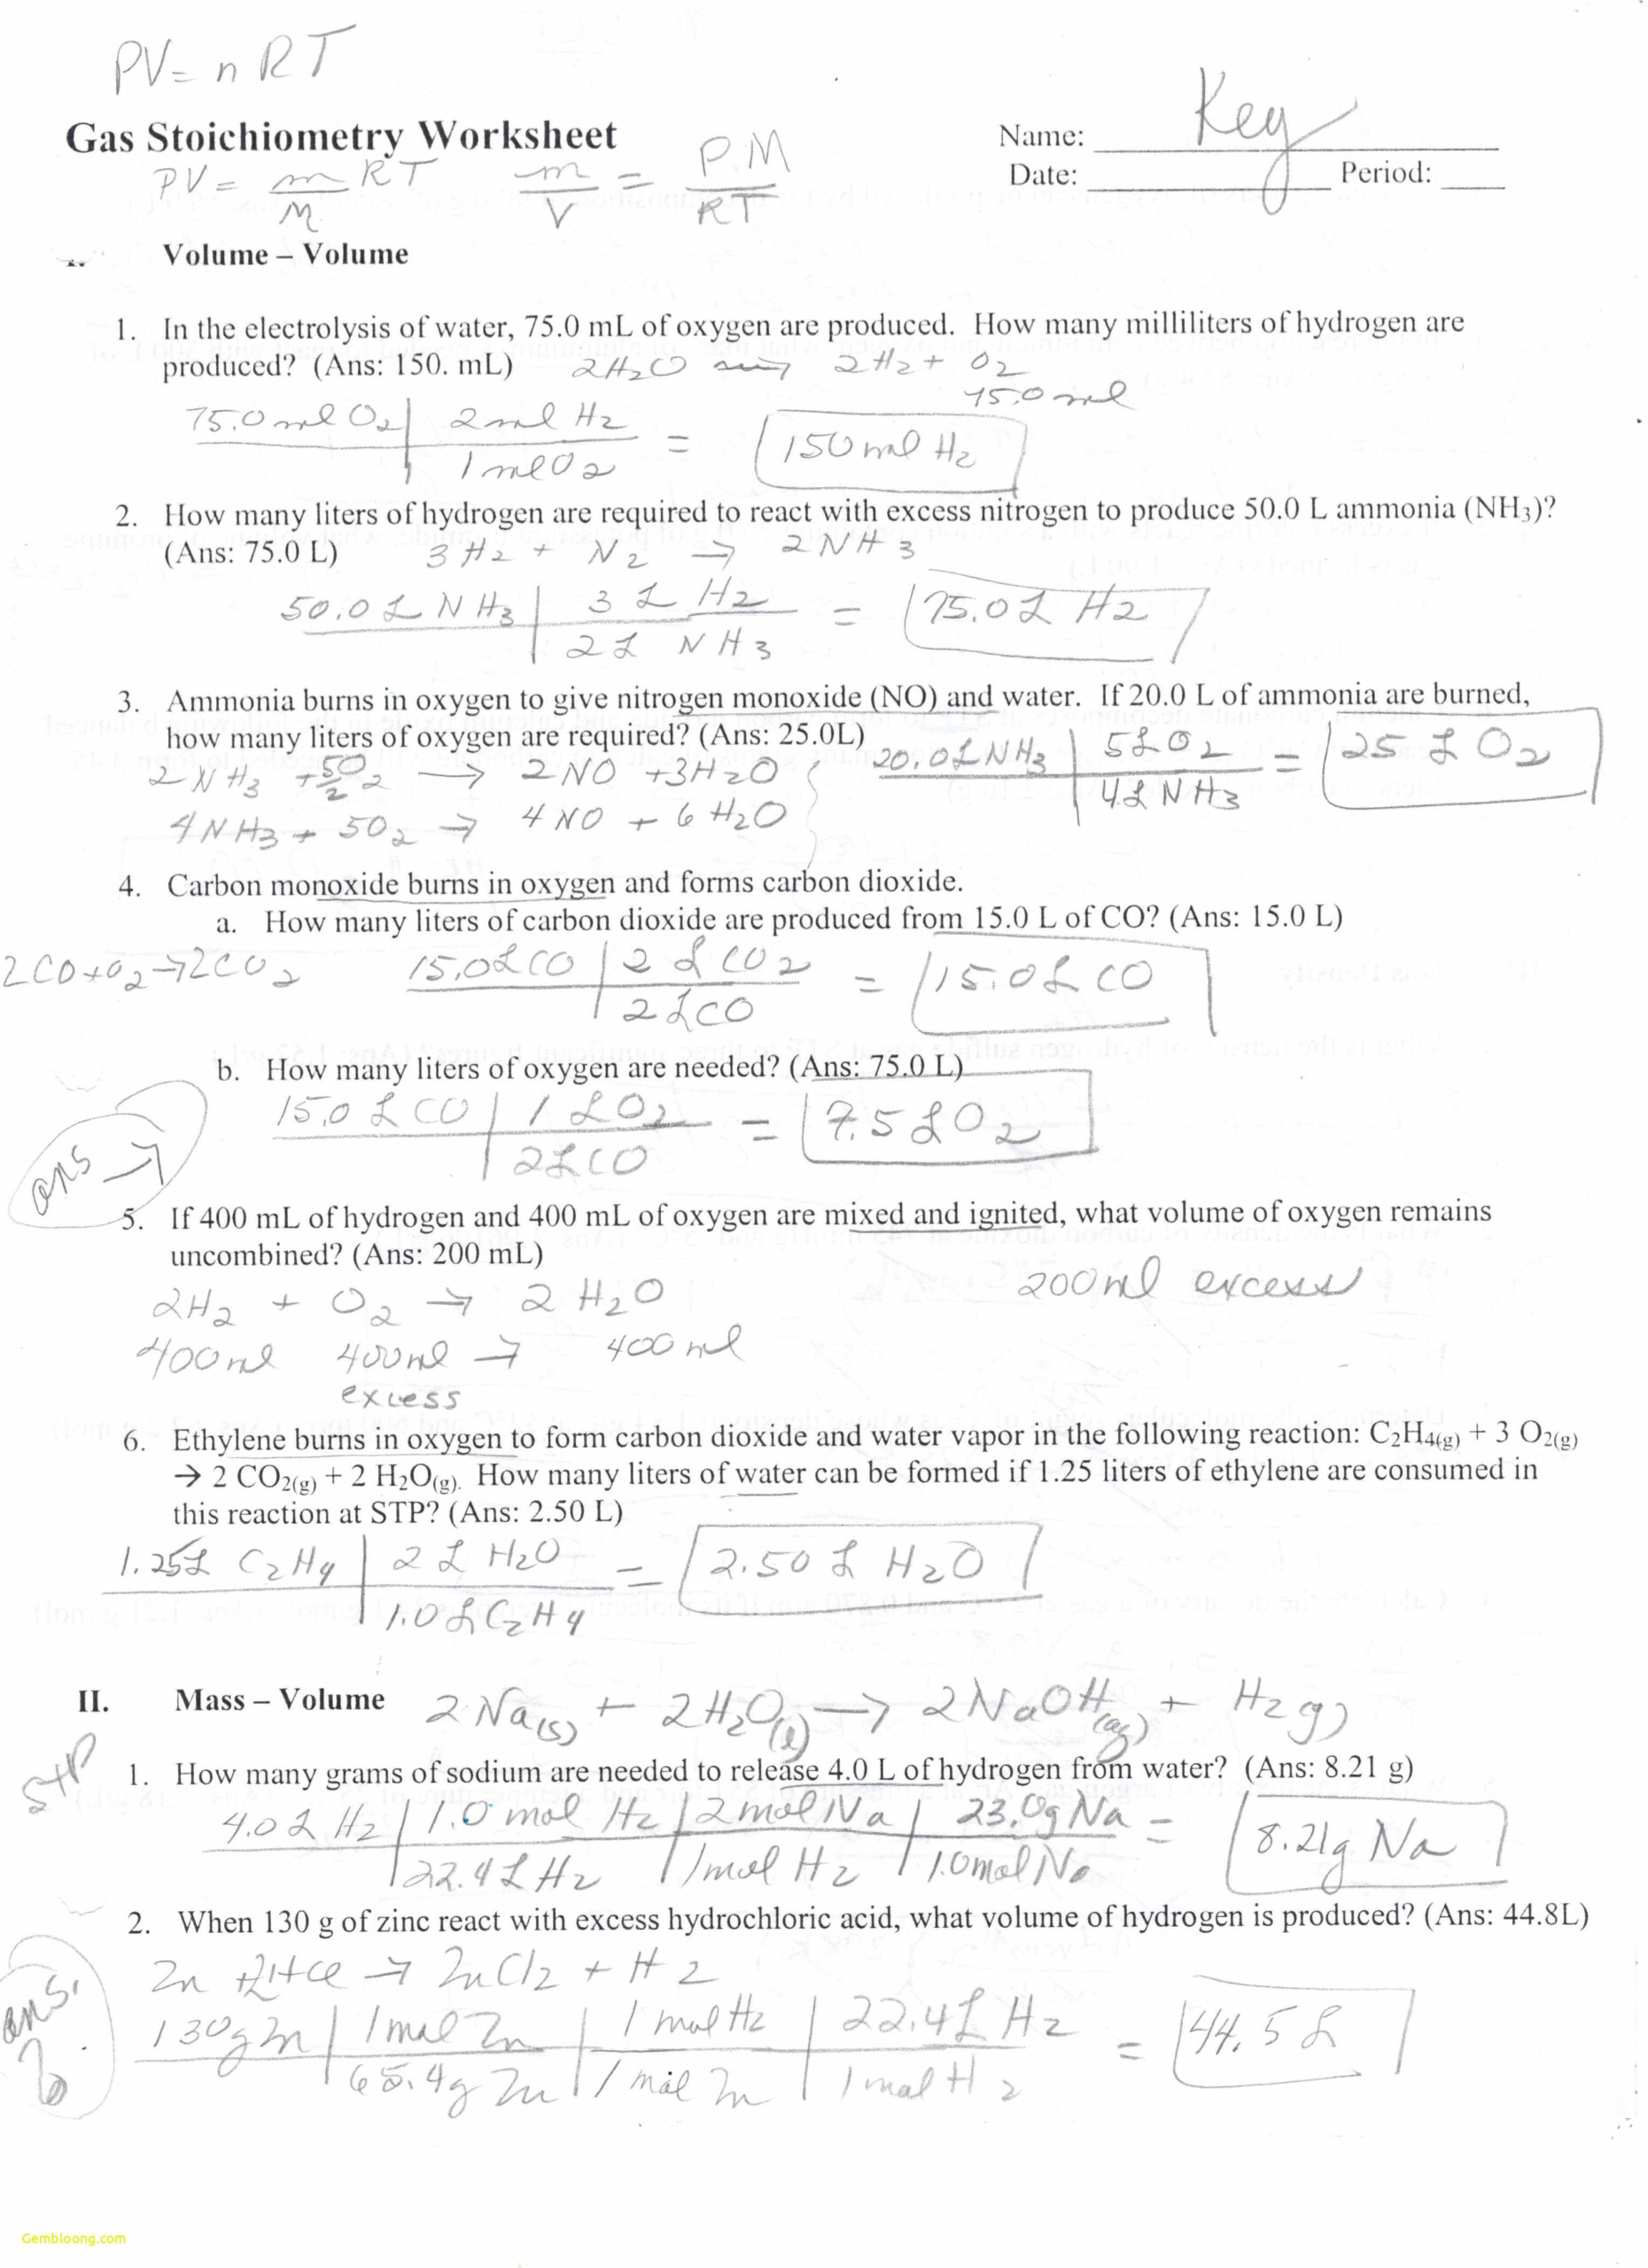 PV = nRT
Gas Stoichiometry Worksheet
Name: Key
PV = m/M RT   m/V = P.M/RT
Date: ____ Period: ____
Volume – Volume
1. In the electrolysis of water, 75.0 mL of oxygen are produced. How many milliliters of hydrogen are
produced? (Ans: 150. mL) 2H2O → 2H2 + O2
75.0 ml
75.0 ml O2 | 2 ml H2 = 150 ml H2
1 ml O2
2. How many liters of hydrogen are required to react with excess nitrogen to produce 50.0 L ammonia (NH3)?
(Ans: 75.0 L) 3H2 + N2 → 2NH3
50.0 L NH3 | 3 L H2 = 75.0 L H2
2 L NH3
3. Ammonia burns in oxygen to give nitrogen monoxide (NO) and water. If 20.0 L of ammonia are burned,
how many liters of oxygen are required? (Ans: 25.0L) 20.0 L NH3 | 5 L O2 = 25 L O2
2NH3 + 5/2 O2 → 2NO + 3H2O 4 L NH3
4NH3 + 5O2 → 4NO + 6H2O
4. Carbon monoxide burns in oxygen and forms carbon dioxide.
a. How many liters of carbon dioxide are produced from 15.0 L of CO? (Ans: 15.0 L)
2CO + O2 → 2CO2 15.0 L CO | 2 L CO2 = 15.0 L CO
2 L CO
b. How many liters of oxygen are needed? (Ans: 75.0 L)
15.0 L CO | 1 L O2 = 7.5 L O2
ans → 2 L CO
5. If 400 mL of hydrogen and 400 mL of oxygen are mixed and ignited, what volume of oxygen remains
uncombined? (Ans: 200 mL)
2H2 + O2 → 2H2O 200 ml excess
400 ml 400 ml → 400 ml
excess
6. Ethylene burns in oxygen to form carbon dioxide and water vapor in the following reaction: C2H4(g) + 3 O2(g)
→ 2 CO2(g) + 2 H2O(g). How many liters of water can be formed if 1.25 liters of ethylene are consumed in
this reaction at STP? (Ans: 2.50 L)
1.25 L C2H4 | 2 L H2O = 2.50 L H2O
1.0 L C2H4
II. Mass – Volume 2Na(s) + 2H2O(l) → 2NaOH(aq) + H2 g)
STP
1. How many grams of sodium are needed to release 4.0 L of hydrogen from water? (Ans: 8.21 g)
4.0 L H2 | 1.0 mol H2 | 2 mol Na | 23.0g Na = 8.21g Na
22.4 L H2 | 1 mol H2 | 1.0 mol Na
2. When 130 g of zinc react with excess hydrochloric acid, what volume of hydrogen is produced? (Ans: 44.8L)
Zn + 2HCl → ZnCl2 + H2
ans.
130g Zn | 1 mol Zn | 1 mol H2 | 22.4 L H2 = 44.5 L
65.4g Zn | 1 mol Zn | 1 mol H2
Gembloong.com